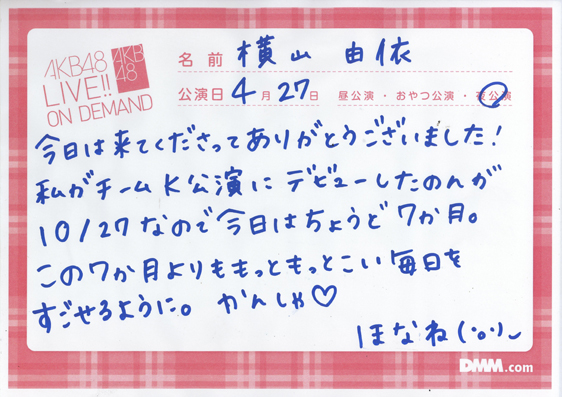 AKB48
LIVE!!
ON DEMAND
AKB
48
名前 横山 由依
公演日 4月27日 昼公演・おやつ公演・夜公演
今日は来てくださってありがとうございました!
私がチームK公演にデビューしたのんが
10/27なので今日はちょうど7か月。
この7か月よりももっともっとこい毎日を
すごせるように。かんしゃ♡
ほなね(°o°)~
DMM.com